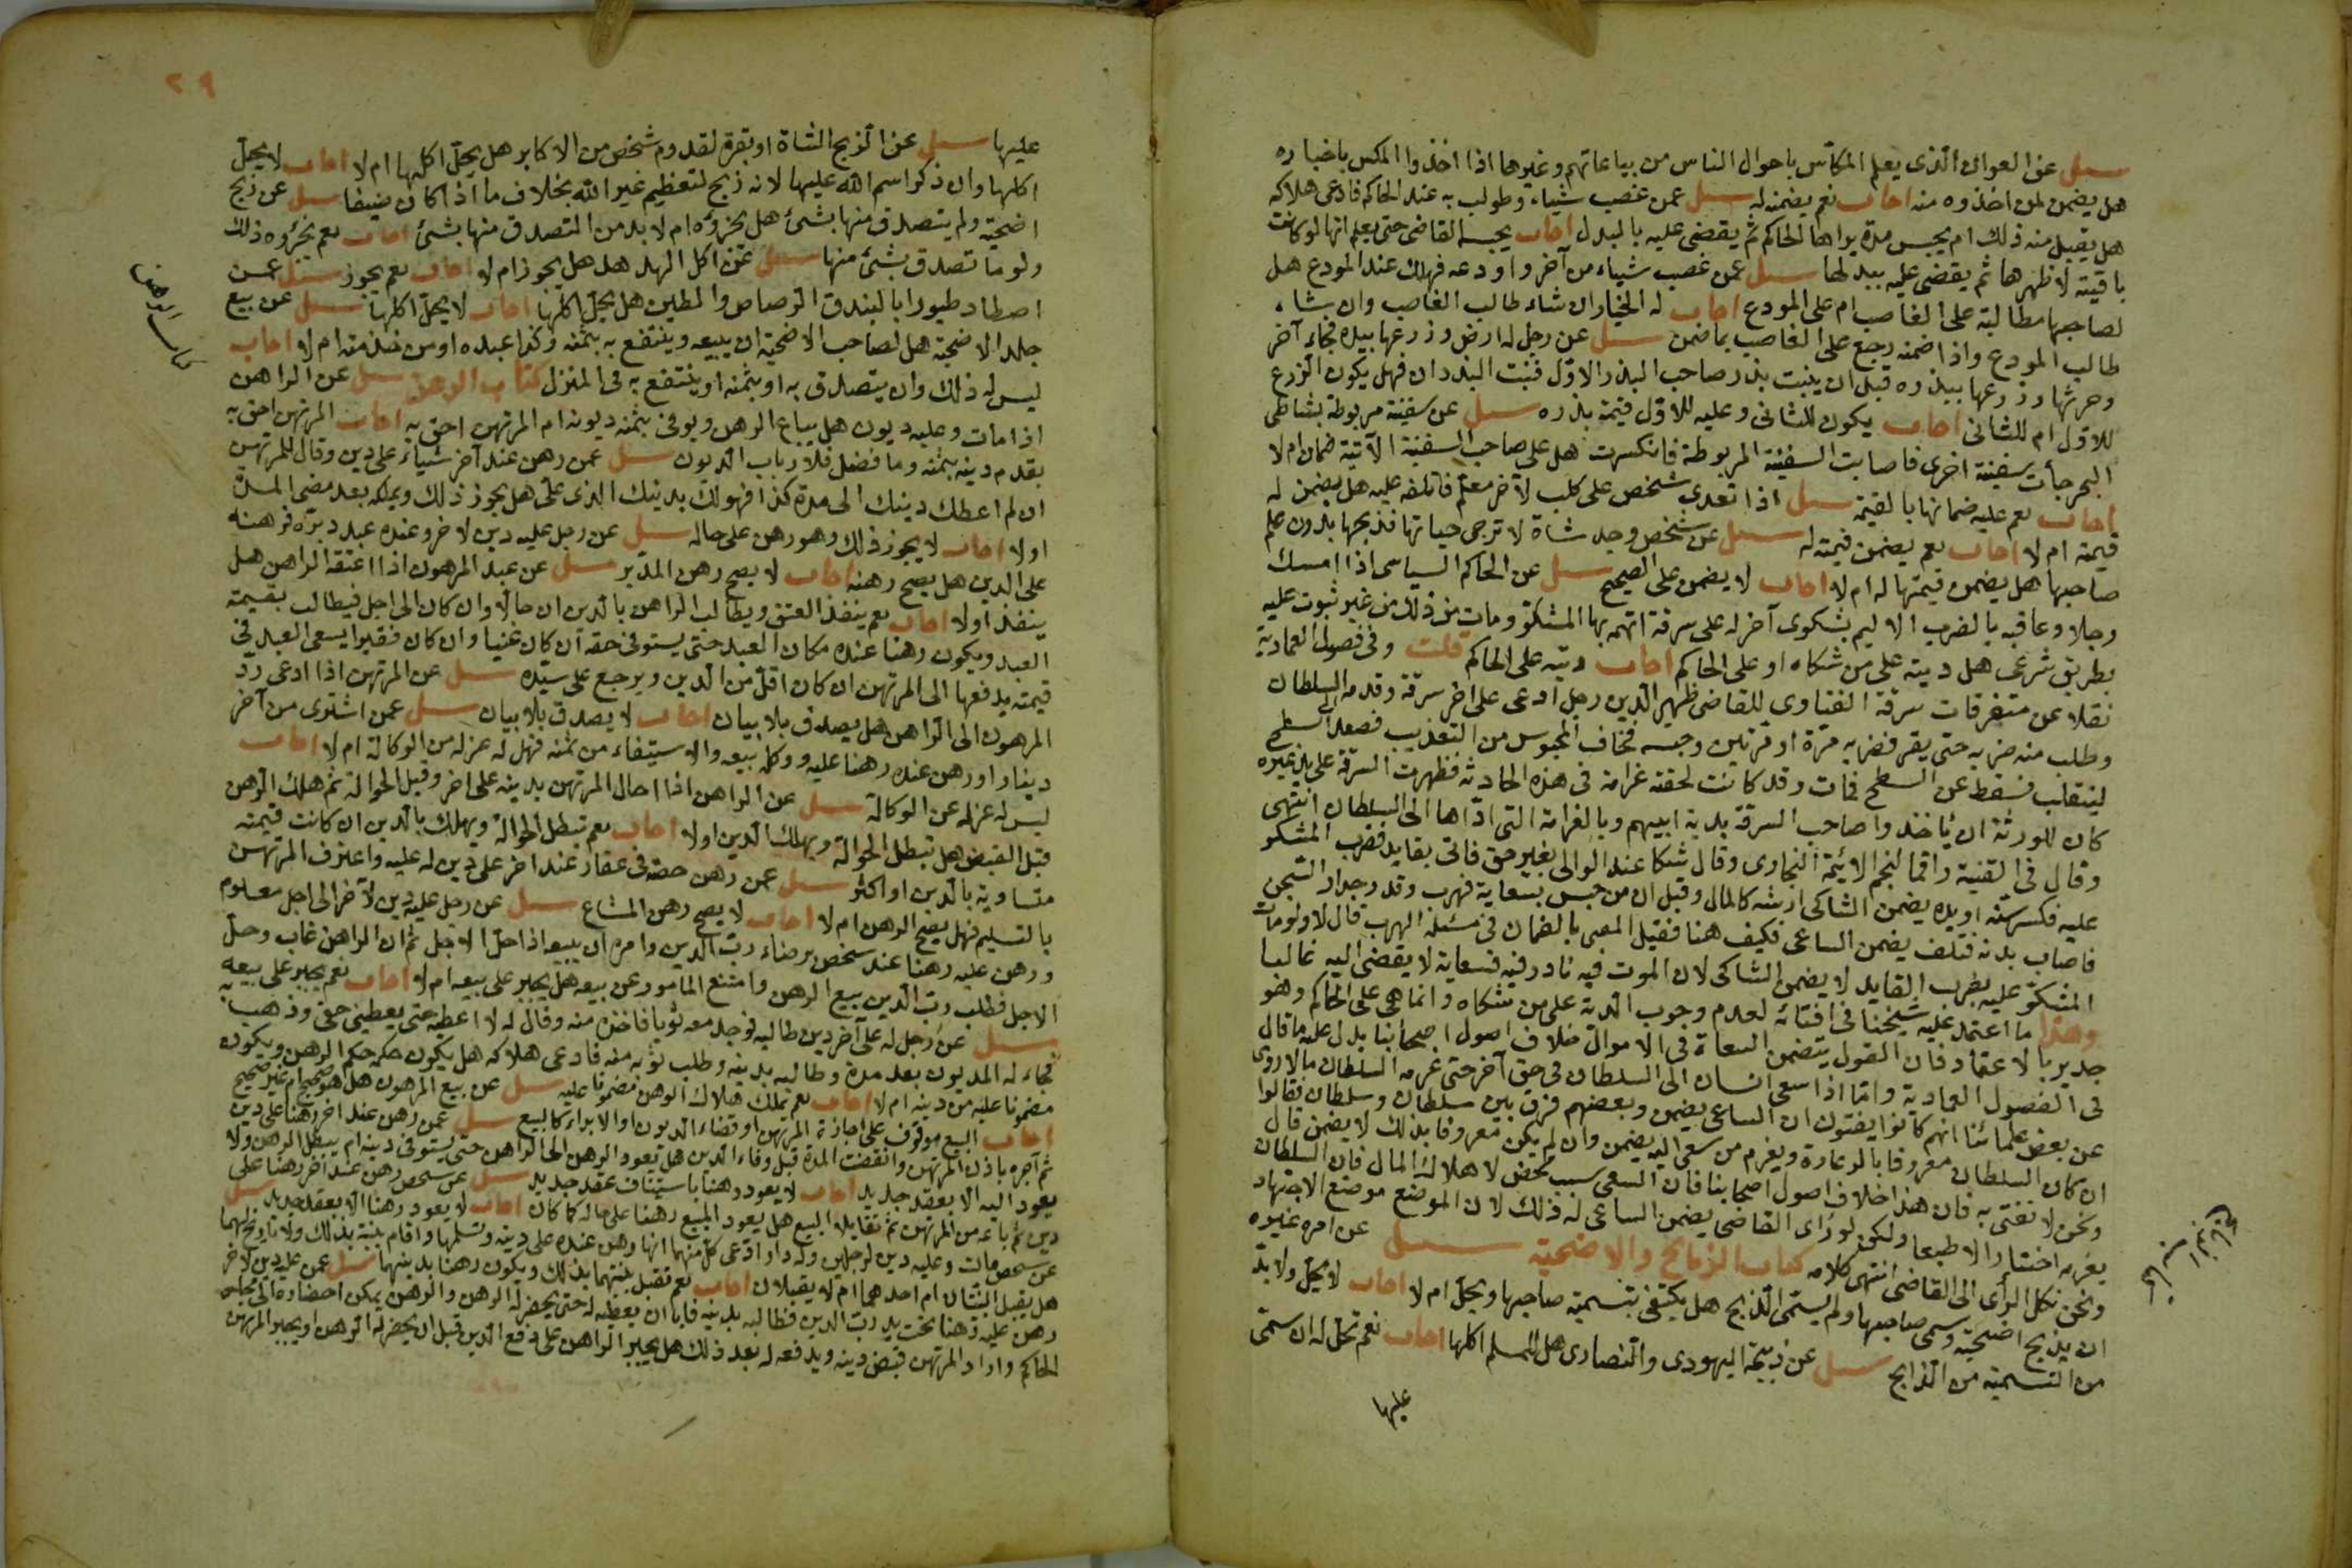 سئل عن العوان الذى يعلم المكاس باحوال الناس من بياعاتهم وغيرها اذا اخذوا المكس باخباره
هل يضمن لمن اخذوه منه اجاب نعم يضمنه له سئل عمن غصب شياء وطولب به عند الحاكم فادعى هلاكه
هل يقبل منه ذلك ام يحبس مدة يراها الحاكم ثم يقضى عليه بالبدل اجاب يحبسه القاضى حتى يعلم انها لو كانت
باقية لاظهرها ثم يقضى عليه ببدلها سئل عمن غصب شياء من آخر واودعه فهلك عند المودع هل
لصاحبها مطالبة على الغاصب ام على المودع اجاب له الخيار ان شاء طالب الغاصب وان شاء
طالب المودع واذا ضمنه رجع على الغاصب بما ضمن سئل عن رجل له ارض وزرعها بيده فجاء آخر
وحرثها وزرعها ببذره قبل ان ينبت بذر صاحب البذر الاول فنبت البذران فهل يكون الزرع
للاول ام للثانى اجاب يكون للثانى وعليه للاول قيمة بذره سئل عن سفينة مربوطة بشاطى
البحر جأت سفينة اخرى فاصابت السفينة المربوطة فانكسرت هل على صاحب السفينة الآتية ضمان ام لا
اجاب نعم عليه ضمانها بالقيمة سئل اذا تعدى شخص على كلب لآخر معلم فاتلفه عليه هل يضمن له
قيمته ام لا اجاب نعم يضمن قيمته له سئل عن شخص وجد شاة لا ترجى حياتها فذبحها بدون علم
صاحبها هل يضمن قيمتها له ام لا اجاب لا يضمن على الصحيح سئل عن الحاكم السياسى اذا امسك
رجلا وعاقبه بالضرب الاليم بشكوى آخر له على سرقة اتهمه بها المشكو ومات من ذلك من غير ثبوت عليه
بطريق شرعى هل ديته على من شكاه او على الحاكم اجاب ديته على الحاكم قلت وفى فصول العمادية
نقلا عن متفرقات سرقة الفتاوى للقاضى ظهير الدين رجل ادعى على اخر سرقة وقدمه السلطان
وطلب منه ضربه حتى يقر فضربه مرة او مرتين وحبسه فخاف المحبوس من التعذيب فصعد السطح
لينقلب فسقط عن السطح فمات وقد كانت لحقته غرامة فى هذه الحادثة فظهرت السرقة على يد غيره
كان للورثة ان ياخذوا صاحب السرقة بدية ابيهم وبالغرامة التى اداها الى السلطان انتهى
وقال فى القنية راقما لنجم الائمة البخارى وقال شكا عند الوالى بغير حق فاتى بقايد فضرب المشكو
عليه فكسر سنه او يده يضمن الشاكى ارشه كالمال وقيل ان من حبس بسعاية فهرب وقد وجدار السجن
فاصاب بدنه فتلف يضمن الساعى فكيف هنا فقيل المفتى بالضمان فى مسئلة الهرب قال لا ولو مات
المشكو عليه بضرب القايد لا يضمن الشاكى لان الموت فيه نادر فيه فسعايته لا يقضى اليه غالبا
وهذا ما اعتمد عليه شيخنا فى افتائه لعدم وجوب الدية على من شكاه وانما هى على الحاكم وهو
جدير بالاعتماد فان القول بتضمن السعاة فى الاموال خلاف اصول اصحابنا يدل عليه ما قال
فى الفصول العمادية واما اذا سعى انسان الى السلطان فى حق آخر حتى غرمه السلطان مالا روى
عن بعض علمائنا انهم كانوا يفتون ان الساعى يضمن وبعضهم فرق بين سلطان وسلطان فقالوا
ان كان السلطان معروفا بالدعارة ويغرم من سعى اليه يضمن وان لم يكن معروفا بذلك لا يضمن قال
ونحن لا نفتى به فان هذا خلاف اصول اصحابنا فان السعى سبب محض لاهلاك المال فان السلطان
يغرمه اختيارا لا طبعا ولكن لو راى القاضى يضمن الساعى له ذلك لان الموضع موضع الاجتهاد
ونحن نكل الرأى الى القاضى انتهى كلامه كتاب الذبائح والاضحية سئل عن امره غيره
ان يذبح اضحيته وسمى صاحبها ولم يسمى الذابح هل يكتفى بتسمية صاحبها ويحل ام لا اجاب لا يحل ولا بد
من التسمية من الذابح سئل عن ذبيحة اليهودى والنصارى هل للمسلم اكلها اجاب نعم تحل له ان سمى
عليها
٢٩
عليها سئل عن الذبح الشاة او بقرة لقدوم شخص من الاكابر هل يحل اكلها ام لا اجاب لا يحل
اكلها وان ذكر اسم الله عليها لانه ذبح لتعظيم غير الله بخلاف ما اذا كان ضيفا سئل عن ذبح
اضحية ولم يتصدق منها بشئ هل يجزؤه ام لا بد من التصدق منها بشئ اجاب نعم يجزؤه ذلك
ولو ما تصدق بشئ منها سئل عن اكل الهدهد هل يجوز ام لا اجاب نعم يجوز سئل عمن
اصطاد طيورا بالبندق الرصاص والطين هل يحل اكلها اجاب لا يحل اكلها سئل عن بيع
جلد الاضحية هل لصاحب الاضحية ان يبيعه وينتفع به بثمنه وكذا عبده او من خدمته ام لا اجاب
ليس له ذلك وان يتصدق به او بثمنه او ينتفع به فى المنزل كتاب الرهن سئل عن الراهن
كتاب الرهن
اذا مات وعليه ديون هل يباع الرهن ويوفى بثمنه ديونه ام المرتهن احق به اجاب المرتهن احق به
يقدم دينه بثمنه وما فضل فلارباب الديون سئل عمن رهن عند آخر شياء على دين وقال للمرتهن
ان لم اعطك دينك الى مدة كذا فهو لك بدينك الذى على هل يجوز ذلك ويملكه بعد مضى المدة
اولا اجاب لا يجوز ذلك وهو رهن على حاله سئل عن رجل عليه دين لاخر وعنده عبد دبره فرهنه
على الدين هل يصح رهنه اجاب لا يصح رهن المدبر سئل عن عبد المرهون اذا اعتقه الراهن هل
ينفذ اولا اجاب نعم ينفذ العتق ويطالب الراهن بالدين ان حالا وان كان الى اجل فيطالب بقيمة
العبد ويكون رهنا عنده مكان العبد حتى يستوفى حقه ان كان غنيا وان كان فقيرا يسعى العبد فى
قيمته يدفعها الى المرتهن ان كان اقل من الدين ويرجع على سيده سئل عن المرتهن اذا ادعى رد
المرهون الى الراهن هل يصدق بلا بيان اجاب لا يصدق بلا بيان سئل عمن اشترى من آخر
دينارا ورهن عنده رهنا عليه ووكله ببيعه والاستيفاء من ثمنه فهل له عزله من الوكالة ام لا اجاب
ليس له عزله عن الوكالة سئل عن الراهن اذا احال المرتهن بدينه على اخر وقبل الحوالة ثم هلك الرهن
قبل القبض هل تبطل الحوالة ويهلك الدين اولا اجاب نعم تبطل الحوالة ويهلك بالدين ان كانت قيمته
متساوية بالدين او اكثر سئل عمن رهن حصته فى عقار عند اخر على دين له عليه واعترف المرتهن
بالتسليم فهل يصح الرهن ام لا اجاب لا يصح رهن المشاع سئل عن رجل عليه دين لآخر الى اجل معلوم
ورهن عليه رهنا عند شخص برضاء رب الدين وامره ان يبيعه اذا حل الاجل ثم ان الراهن غاب وحل
الاجل فطلب رب الدين بيع الرهن وامتنع المامور عن بيعه هل يجبر على بيعه ام لا اجاب نعم يجبر على بيعه
سئل عن رجل له على آخر دين طالبه فوجد معه ثوبا فاخذه منه وقال له لا اعطيه حتى يعطينى حقى وذهب به
فجاء له المديون بعد مدة وطالبه بدينه وطلب ثوبه منه فادعى هلاكه هل يكون حكمه حكم الرهن ويكون
مضمونا عليه من دينه ام لا اجاب نعم يهلك هلاك الرهن مضمونا عليه سئل عن بيع المرهون هل هو صحيح ام غير صحيح
اجاب البيع موقوف على اجازة المرتهن او قضاء الديون او الابراء كالبيع سئل عمن رهن عند اخر رهنا على دين
ثم آجره باذن المرتهن وانقضت المدة قبل وفاء الدين هل يعود الرهن الى الراهن حتى يستوفى دينه ام يبطل الرهن ولا
يعود اليه الا بعقد جديد اجاب لا يعود رهنا باستيناف عقد جديد سئل عن شخص رهن عند آخر رهنا على
دين ثم باعه من المرتهن ثم تقايلا البيع هل يعود المبيع رهنا على حاله كما كان اجاب لا يعود رهنا الا بعقد جديد سئل
عن شخص مات وعليه دين لرجلين وله دار ادعى كل منهما انها رهن عنده على دينه وتسلمها واقام بينة بذلك ولا تاريخ لهما
هل يقبل البينتان ام احدهما ام لا يقبلان اجاب نعم تقبل بينتهما بذلك ويكون رهنا بدينهما سئل عمن عليه دين لاخر
رهن عليه رهنا تحت يد رب الدين فطالبه بدينه فابا ان يعطيه له حتى يحضر له الرهن والرهن يمكن احضاره الى مجلس
الحاكم واراد المرتهن قبض دينه ويدفعه له بعد ذلك هل يجبر الراهن على دفع الدين قبل ان يحضر له الرهن او يجبر المرتهن